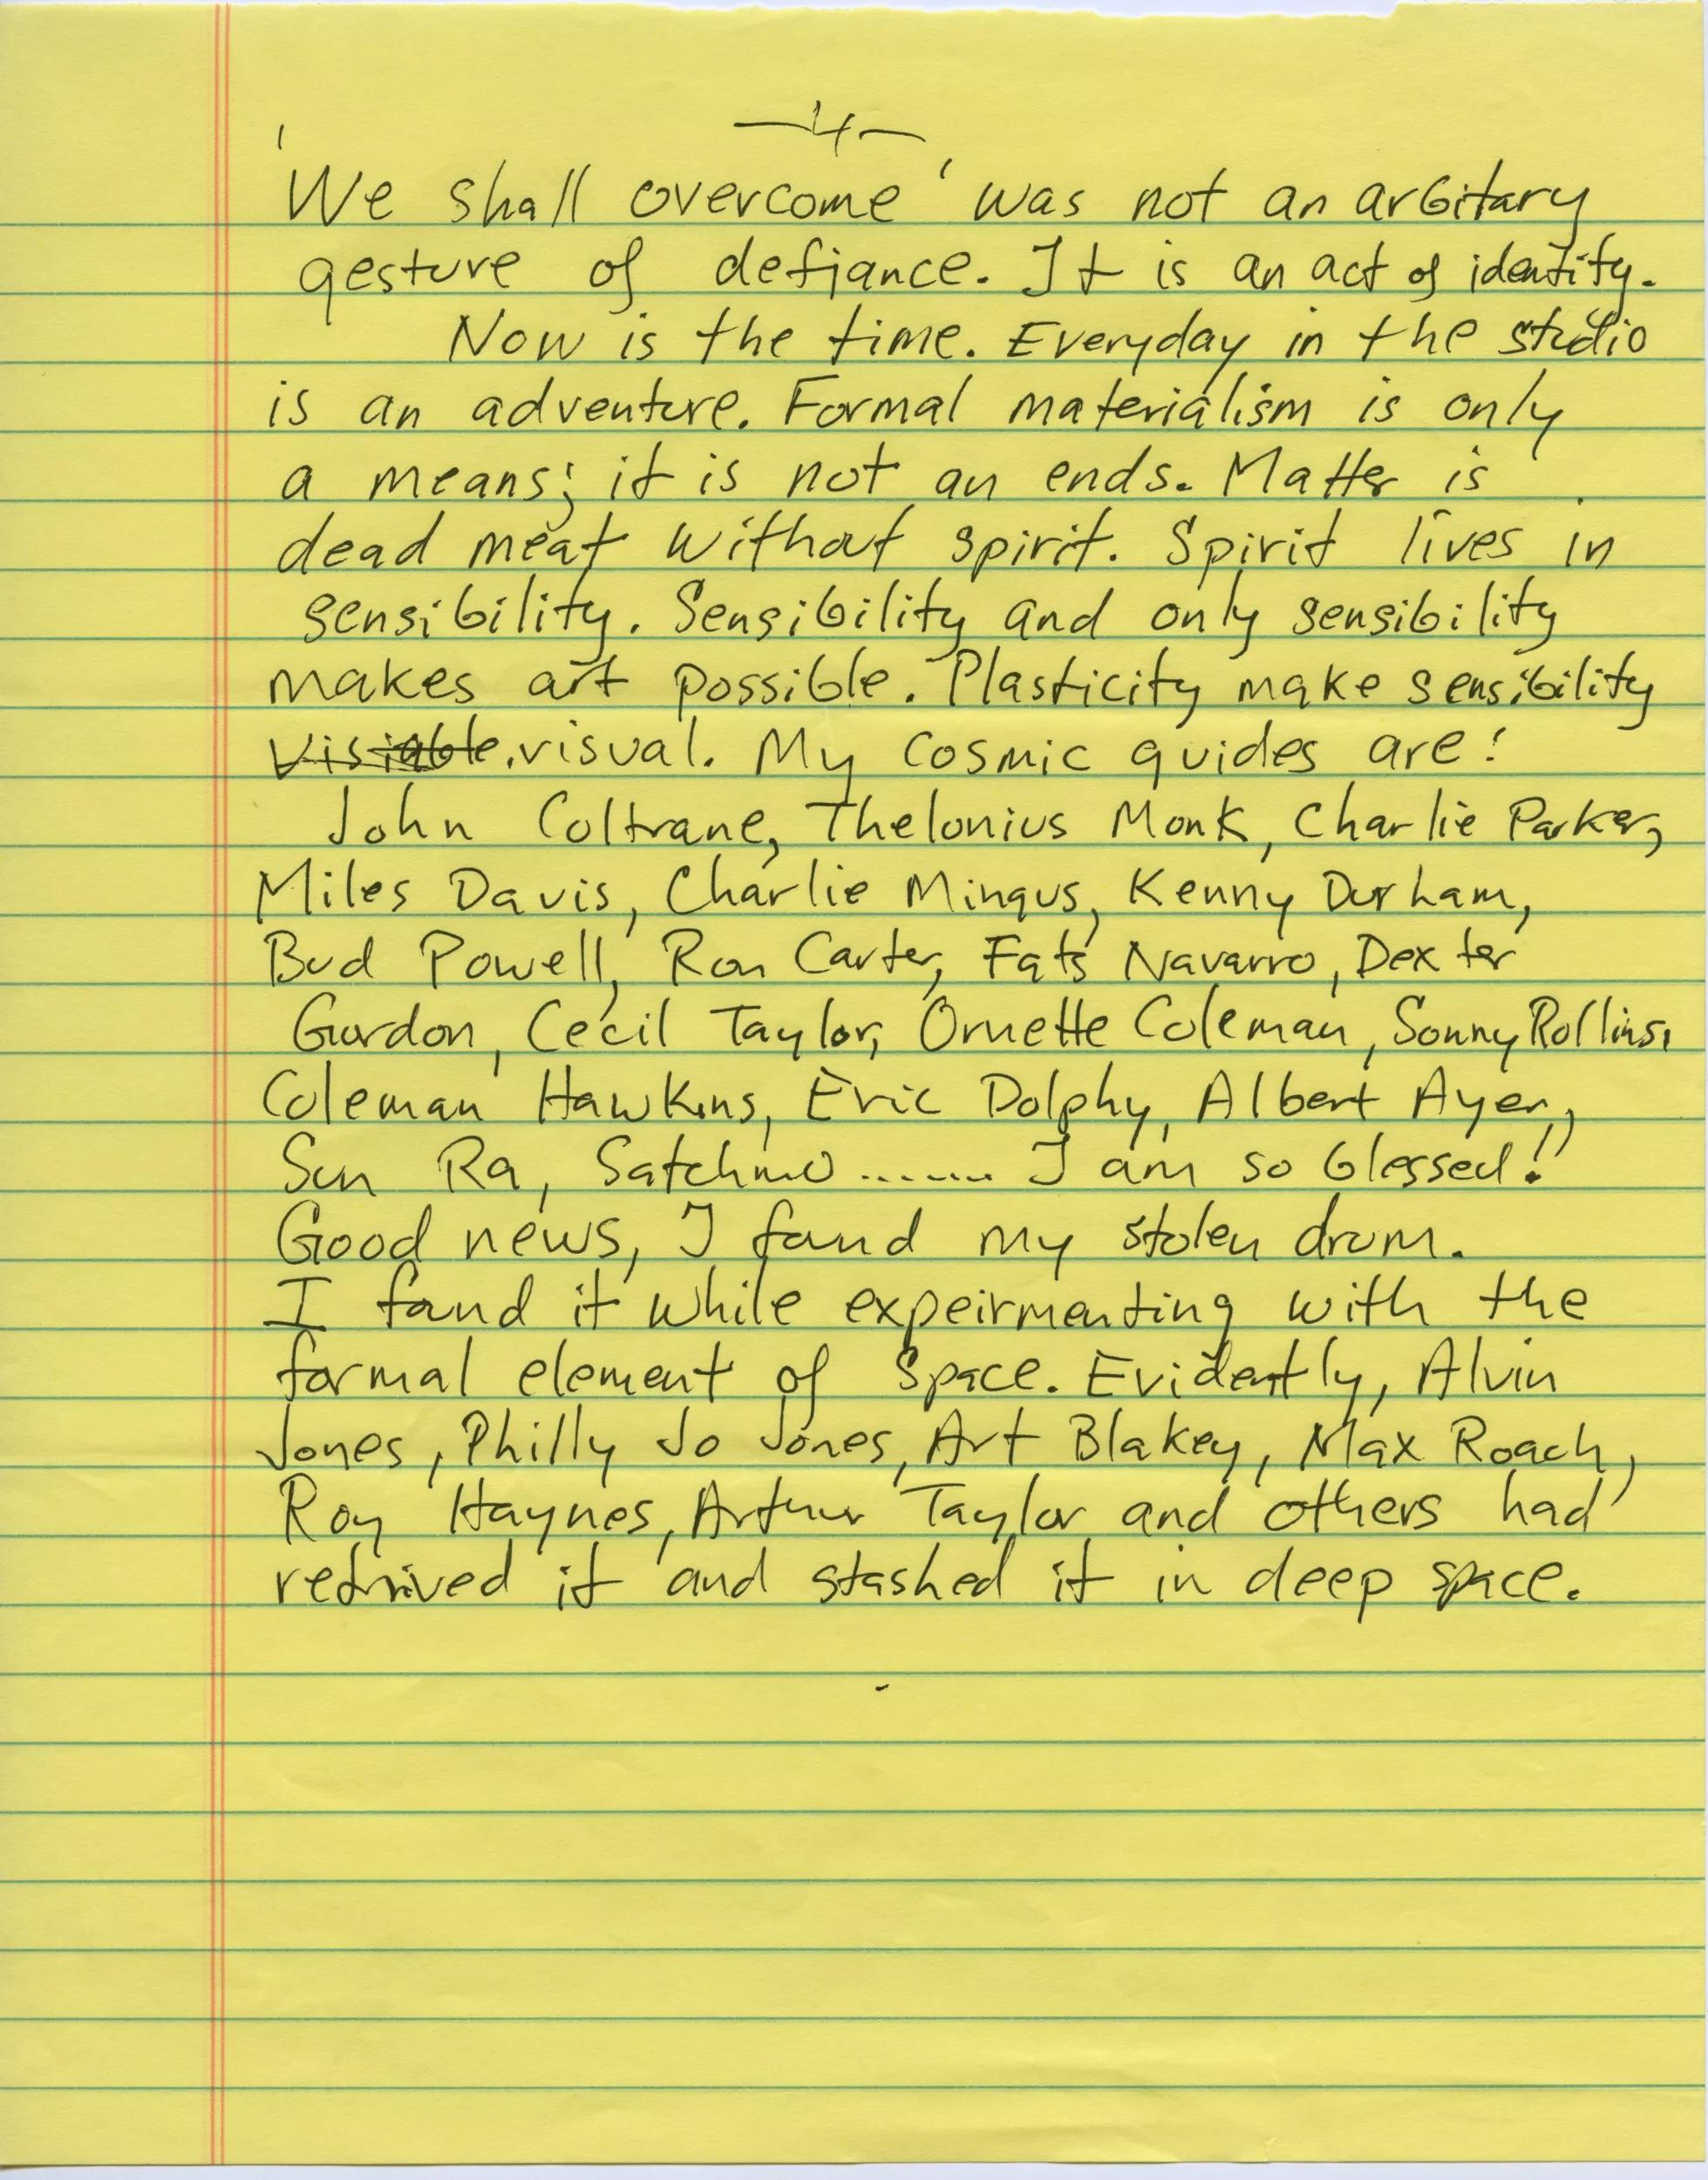 —4—
'We shall overcome' was not an arbitary
gesture of defiance. It is an act of identity.
Now is the time. Everyday in the studio
is an adventure. Formal materialism is only
a means; it is not an ends. Matter is
dead meat without spirit. Spirit lives in
sensibility. Sensibility and only sensibility
makes art possible. Plasticity make sensibility
visiable. visual. My cosmic guides are:
John Coltrane, Thelonius Monk, Charlie Parker,
Miles Davis, Charlie Mingus, Kenny Durham,
Bud Powell, Ron Carter, Fats Navarro, Dexter
Gordon, Cecil Taylor, Ornette Coleman, Sonny Rollins,
Coleman Hawkins, Eric Dolphy, Albert Ayer,
Sun Ra, Satchmo ....... I am so blessed!!
Good news, I found my stolen drum.
I found it while expeirmenting with the
formal element of space. Evidently, Alvin
Jones, Philly Jo Jones, Art Blakey, Max Roach,
Roy Haynes, Arthur Taylor and others had
retrived it and stashed it in deep space.